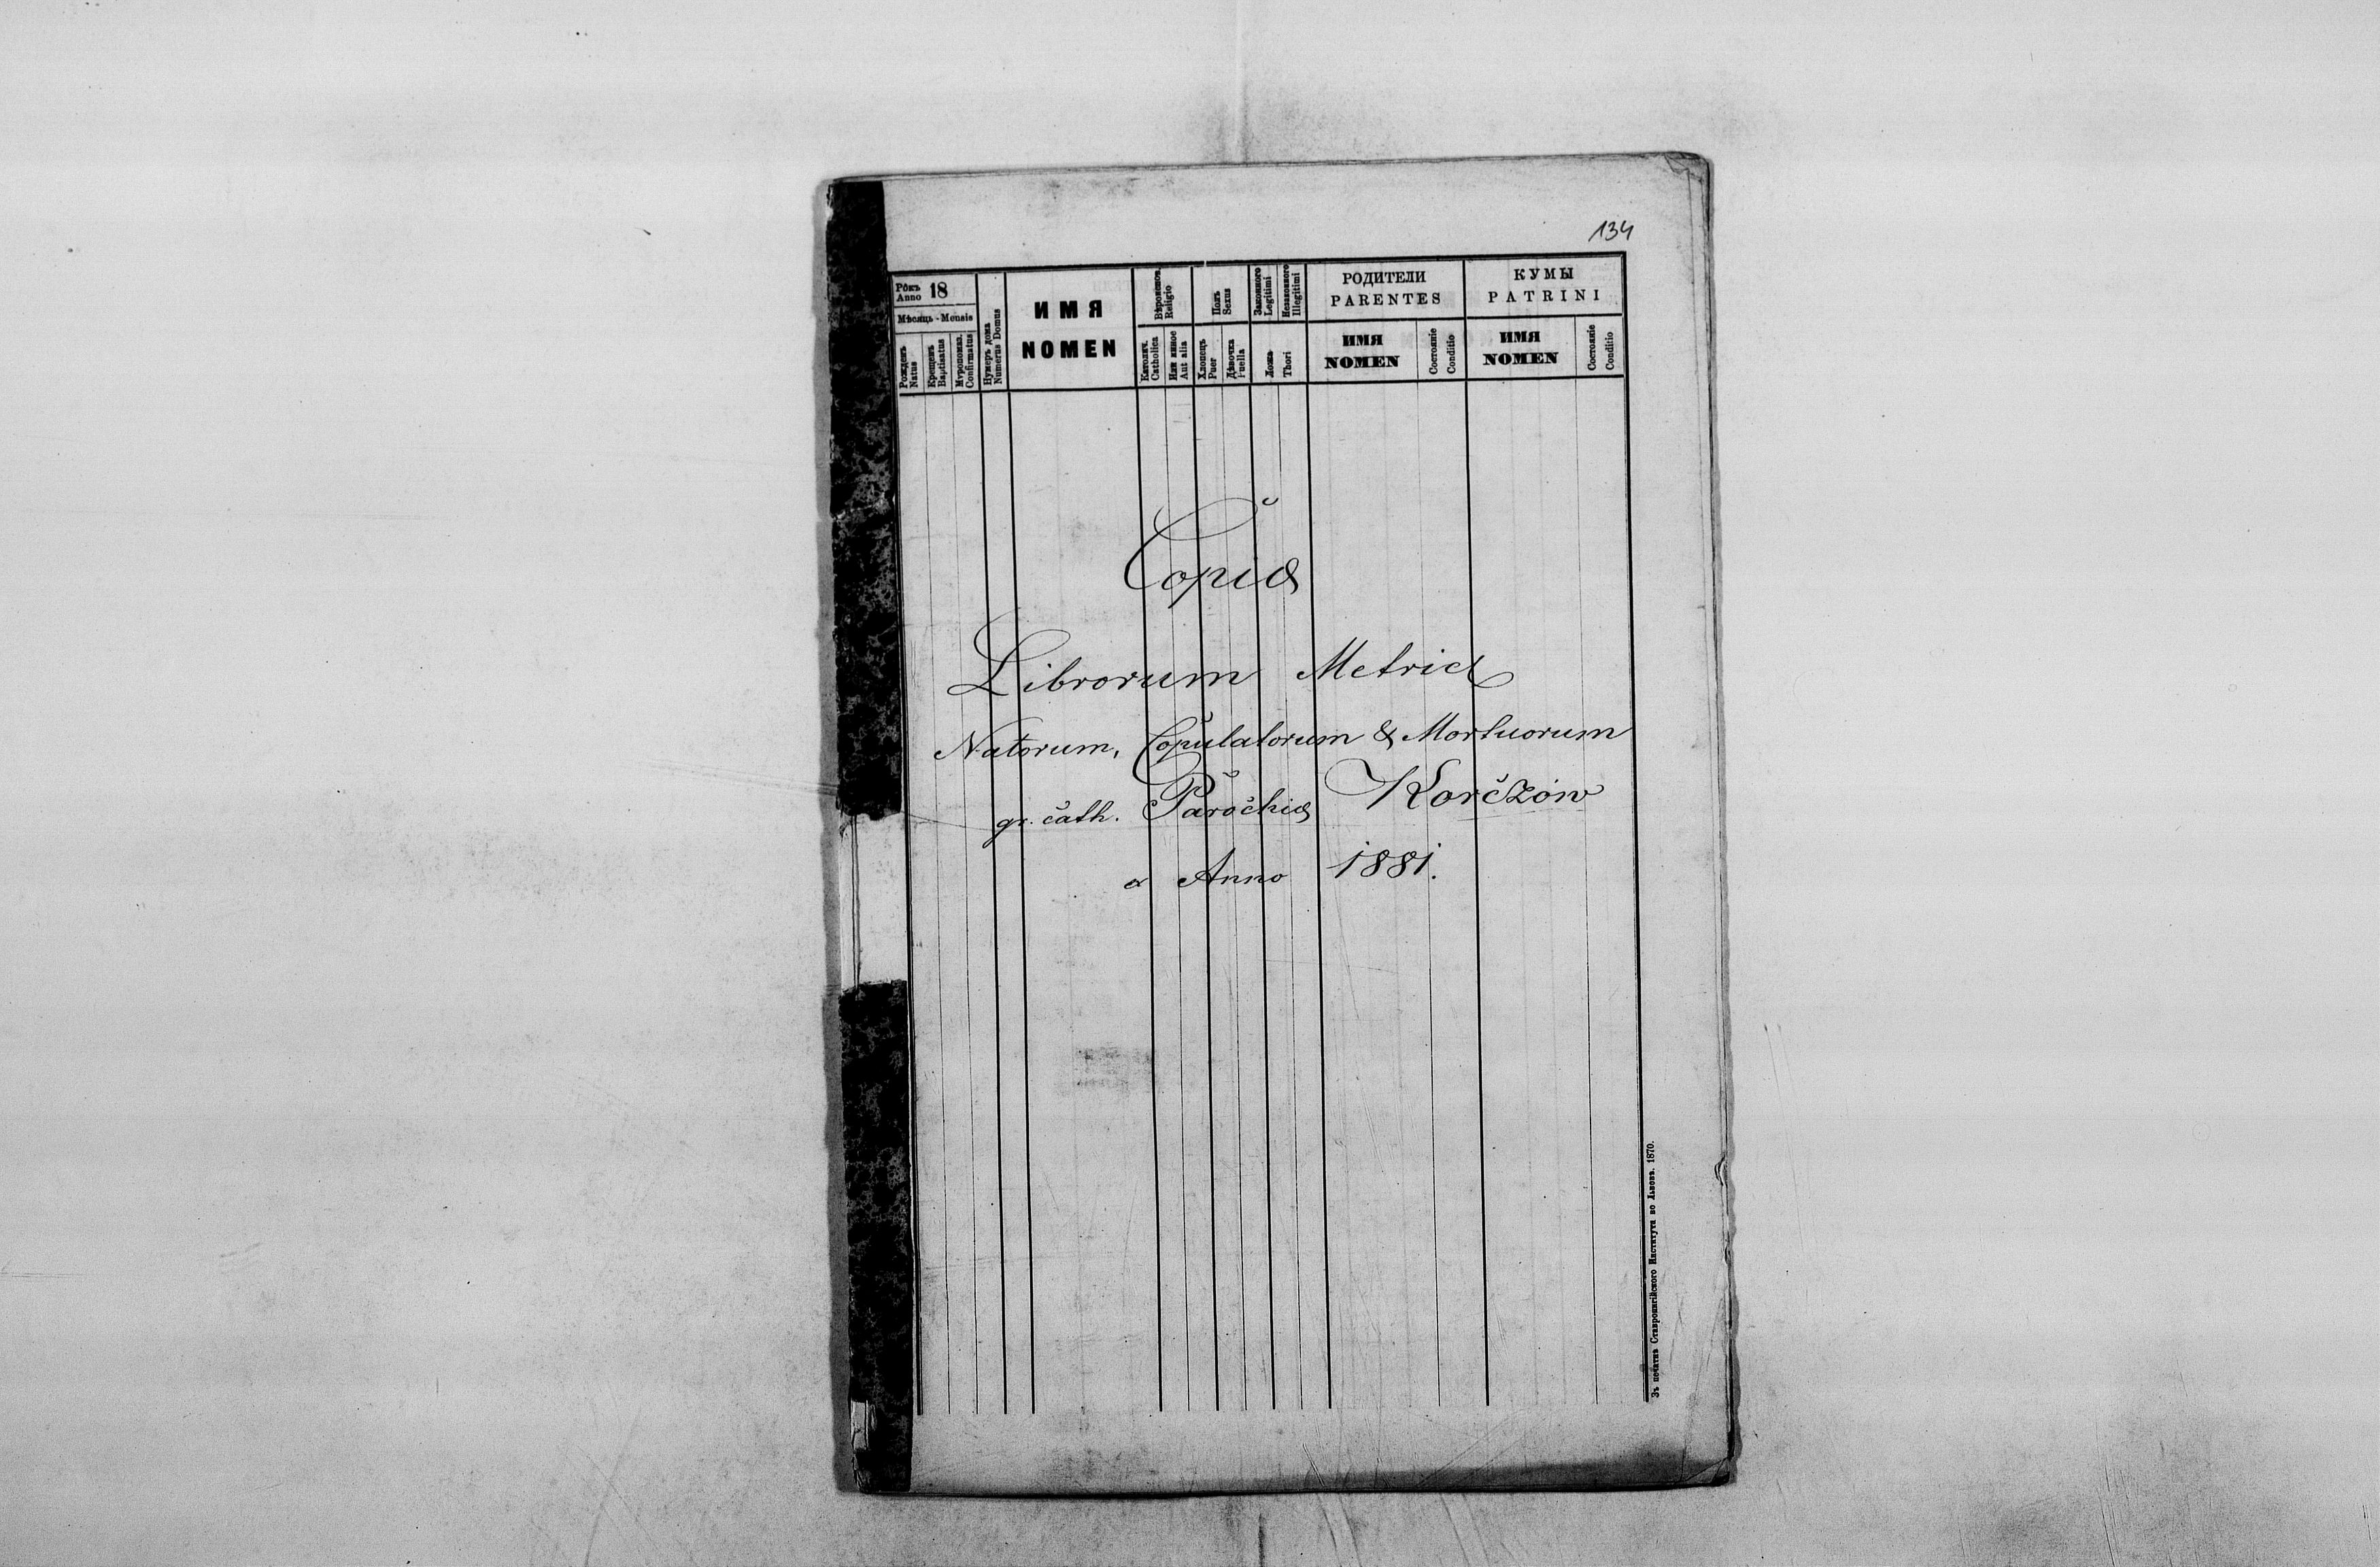 134
Рôкъ
Anno 18
Мѣсяць - Mensis
Рожденъ
Natus
Крещенъ
Baptisatus
Мѵропомаз.
Confirmatus
Нумеръ дома
Numerus Domus
ИМЯ
NOMEN
Religio
Католич.
Catholica
Или иное
Aut alia
Полъ
Sexus
Хлопецъ
Puer
Дѣвочка
Puella
Законного
Legitimi
Незаконного
Illegitimi
Ложа
Thori
РОДИТЕЛИ
PARENTES
ИМЯ
NOMEN
Состояніе
Conditio
КУМЫ
PATRINI
ИМЯ
NOMEN
Состояніе
Conditio
Copiæ
Librorum Metricæ
Natorum, Copulatorum & Mortuorum
gr. cath. Parochiæ Korczów
a Anno 1881.
Зъ печатнѣ Ставропигійского Института во Львовѣ. 1870.